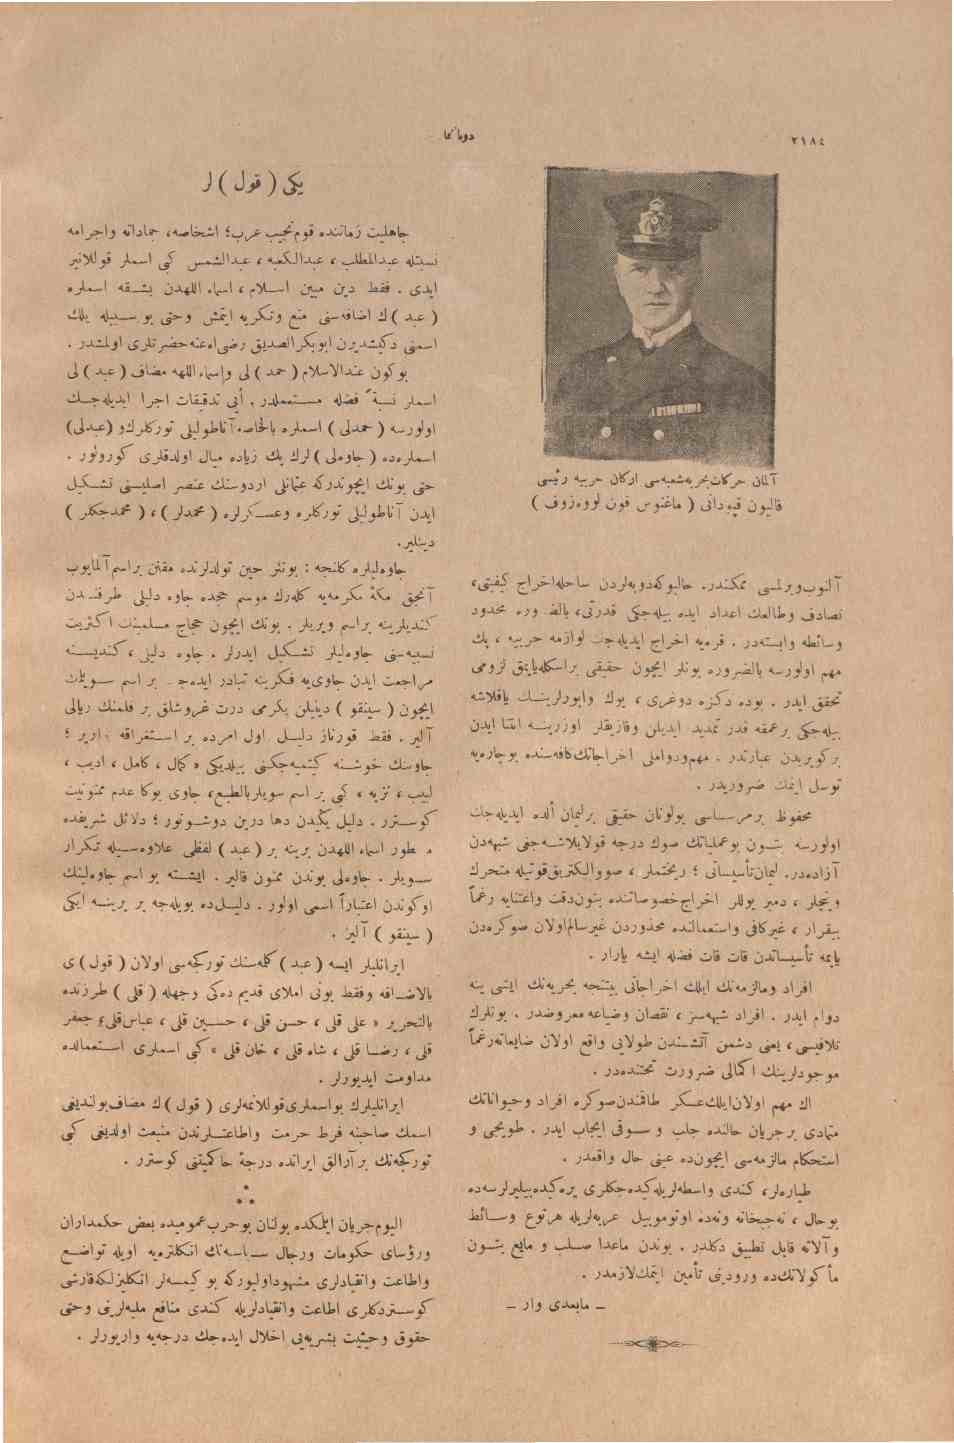 ٢١٨٤
دوناكما
آلمان حركات بحريه شعبه‌سی اركان حربيه رئيسی
قاليون قپودانی ( ماغنوس فون لووه‌زوف )
آلنوب ويرلمسی ممكندر. حالبوكه دوبه‌لردن ساحله اخراج كيفيتی،
تصادف وطالعك اعداد ايده بيله‌جكی قدرتی، بالضروره محدود
وسائطه وابسته‌در . قره‌يه اخراج ايديله‌جك لوازمه حربيه ، پك
مهم اولورسه بالضروره بونلر ايچون حقيقی براسكله‌يايمق لزومی
تحقق ايدر . بوده دكزه دوغری ، يوك واپورلرينك ياقلاشه
بيله‌جكی برعمقه قدر تمديد ايديلن وقازيقلر اوزرينه ابتنا ايدن
بركوپريدن عبارتدر . مهم ودواملی اخراجاتك كافه‌سنده بوچاره‌يه
توسل ايتمك ضروريدر .
محفوظ برمرساسی بولونان حقيقی برليمان ألده ايديله‌جك
اولورسه بتون بوعملياتك صوك درجه قولايلاشه‌جغی شبهه‌دن
آزاده‌در. ليمان تأسيساتی ؛ ريختملر ، صو والكتريق قوتيله متحرك
وينچلر ، دمير يوللر اخراج خصوصاتنده بتون دقت واعتنايه رغماً
بيقرار ، غيركافی واستعمالنده محذوردن غيرسالم اولان صوكره‌دن
ياپمه تأسيساتدن قات قات فضله ايشه يارار .
افراد ومالزمه‌نك ايلك اخراجاتی بيتنجه بحريه‌نك ايشی ينه
دوام ايدر . افراد شبهه‌سز ، نقصان وضياعه معروضدر . بونلرك
تلافيسی ، يعنی دشمن آتشندن طولايی واقع اولان ضايعاته رغماً
موجودلرينك اكمالی ضرورت تحتنده‌در .
اك مهم اولان ايلك عسكر طاقمندن صوكره افراد وحيواناتك
متمادی برجريان حالنده جلب و سوقی ايجاب ايدر . طوپجی و
استحكام مالزمه‌سی ايچون‌ده عينی حال واقعدر .
طياره‌لر، كندی واسطه‌لريله كيده‌جكلری يره كيده‌بيليرلرسه‌ده
بوحال ، نه‌جبخانه ونه‌ده اوتوموبيل عربه‌لريله هرنوع وسائط
وآلاته قابل تطبيق دكلدر . بوندن ماعدا صلب و مايع بتون
مأكولاتك‌ده ورودينی تأمين ايتمك لازمدر .
ـ مابعدی وار ـ
يكی ( قول ) لر
جاهليت زماننده قوم نجيب عرب؛ اشخاصه، جماداته واجرامه
نسبتله عبدالمطلب ، عبدالكعبه ، عبدالشمس كبی اسملر قوللانير
ايدی . فقط دين مبين اسلام ، اسماء اللهدن بشقه اسملره
( عبد ) ك اضافه‌سنی منع وتكريه ايتمش وحتی بو سببله يلك
اسمنی دكيشديرن ابوبكرالصديق رضی‌اه‌عنه حضرتلری اولمشدر .
بوكون عندالاسلام ( حمد ) لی واسماء اللهه مضاف ( عبد ) لی
اسملر نسبةً فضله مستعملدر . أيی تدقيقات اجرا ايديله‌جك
اولورسه ( حمدلی ) اسملره بالخاصه آناطولیلی توركلرك و (عبدلی)
اسملره‌ده ( جاوه‌لی ) لرك پك زياده ميال اولدقلری كورولور .
حتی بونك ايچوندركه عثمانلی اردوسنك عنصر اصليسنی تشكيل
ايدن آناطولیلی توركلره وعسكرلره ( محمدلر ) ، ( محمدجكلر )
دينلير.
جاوه‌ليلره كلنجه : بونلر حين تولدلرنده مقنن براسم آلمايوب
آنجق مكۀ مكرمه‌يه كله‌رك موسم حجده جاوه دليلی طرفندن
كنديلرينه براسم ويريلر . بونك ايچون حجاج مسلمينك اكثريت
نسبيه‌سنی جاوه‌ليلر تشكيل ايدرلر . جاوه دليلی ، كنديسنه
مراجعت ايدن جاوی‌يه فكرينه تبادر ايده‌جك بر اسم سويلمك
ايچون ( سينقو ) دينيلن يكرمی درت غروشلق بر فلمنك ريالی
آلير . فقط قورناز دليل اول امرده بر استغراقه واریر ؛
جاوينك خوشنه كيتميه‌جكنی بيلديكی « كمال ، كامل ، اديب ،
لبيب ، نزيه » كبی بر اسم سويلر بالطبع، جاوی بوكا عدم ممنونيت
كوسترر . دليل يكيدن دها درين دوشونور ؛ دلائل شريفده
مسطور اسماء اللهدن برينه بر ( عبد ) لفظی علاوه‌سيله تكرار
سويلر . جاوه‌لی بوندن ممنون قالير . ايشته بو اسم جاوه‌لينك
اوكوندن اعتباراً اسمی اولور . دليل‌ده بويله‌جه بر برينه ايكی
( سينقو ) آلير .
ايرانليلر ايسه ( عبد ) كلمه‌سنك توركجه‌سی اولان ( قول ) ی
بالاضافه وفقط بونی املای قديم ده‌كی وجهله ( قلی ) طرزنده
بالتحرير « علی قلی ، حسن قلی ، حسين قلی ، عباس قلی، جعفر
قلی ، رضا قلی ، شاه قلی ، خان قلی » كبی اسملری استعمالده
مداومت ايديورلر .
ايرانليلرك بواسملری قوللانمه‌لری ( قول ) ك مضاف بولنديغی
اسمك صاحبنه فرط حرمت واطاعتلرندن منبعث اولديغی كبی
توركجه‌نك برآرالق ايرانده درجۀ حاكميتنی كوسترر .
⁂
اليوم جريان ايتمكده بولنان بوحرب عموميده بعض حكمداران
ورؤسای حكومات ورجال سياسه‌نك انكلتره‌يه اويله تواضع
واطاعت وانقيادلری مشهود اوليوركه بو كيمسه‌لر انكليزلكه قارشی
كوستردكلری اطاعت وانقيادلريله كندی منافع مليه‌لرينی وحتی
حقوق وحيثيت بشريه‌يی اخلال ايده‌جك درجه‌يه واريورلر .